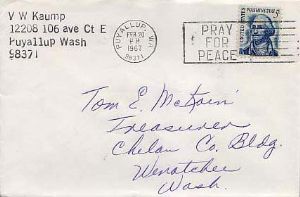 V W Kaump
12208 106 ave Ct E
Puyallup Wash
98371
PUYALLUP, WA
FEB 20
PM
1967
98371
PRAY
FOR
PEACE
5c
Tom E. McKoin
Treasurer
Chelan Co. Bldg.
Wenatchee
Wash.